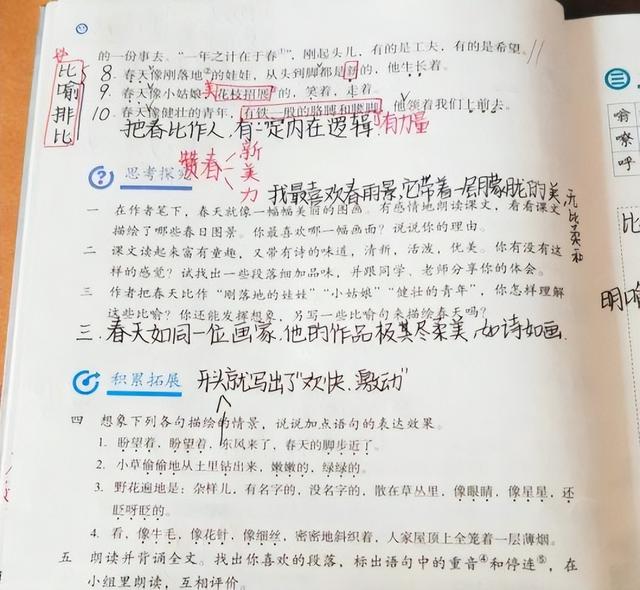 的一份事去。“一年之计在于春①”，刚起头儿，有的是工夫，有的是希望。
比
喻
排
比
8. 春天像刚落地②的娃娃，从头到脚都是新的，他生长着。
9. 春天像小姑娘，花枝招展的，笑着，走着。
美
10. 春天像健壮的青年，有铁一般的胳膊和腰脚，他领着我们上前去。
有力量
把春比作人，有一定内在逻辑
赞春
新
美
力
思考探究
我最喜欢春雨景，它带着一层朦胧的美，
无比柔和
一 在作者笔下，春天就像一幅幅美丽的图画。有感情地朗读课文，看看课文
描绘了哪些春日图景。你最喜欢哪一幅画面？说说你的理由。
二 课文读起来富有童趣，又带有诗的味道，清新，活泼，优美。你有没有这
样的感觉？试找出一些段落细加品味，并跟同学、老师分享你的体会。
三 作者把春天比作“刚落地的娃娃”“小姑娘”“健壮的青年”，你怎样理解
这些比喻？你还能发挥想象，另写一些比喻句来描绘春天吗？
三.春天如同一位画家，他的作品极其尽柔美，如诗如画.
积累拓展
开头就写出了“欢快、激动”
四 想象下列各句描绘的情景，说说加点语句的表达效果。
1. 盼望着，盼望着，东风来了，春天的脚步近了。
2. 小草偷偷地从土里钻出来，嫩嫩的，绿绿的。
3. 野花遍地是：杂样儿，有名字的，没名字的，散在草丛里，像眼睛，像星星，还
眨呀眨的。
4. 看，像牛毛，像花针，像细丝，密密地斜织着，人家屋顶上全笼着一层薄烟。
五 朗读并背诵全文。找出你喜欢的段落，标出语句中的重音④和停连⑤，在
小组里朗读，互相评价。
三
嘹
呼
比
明喻